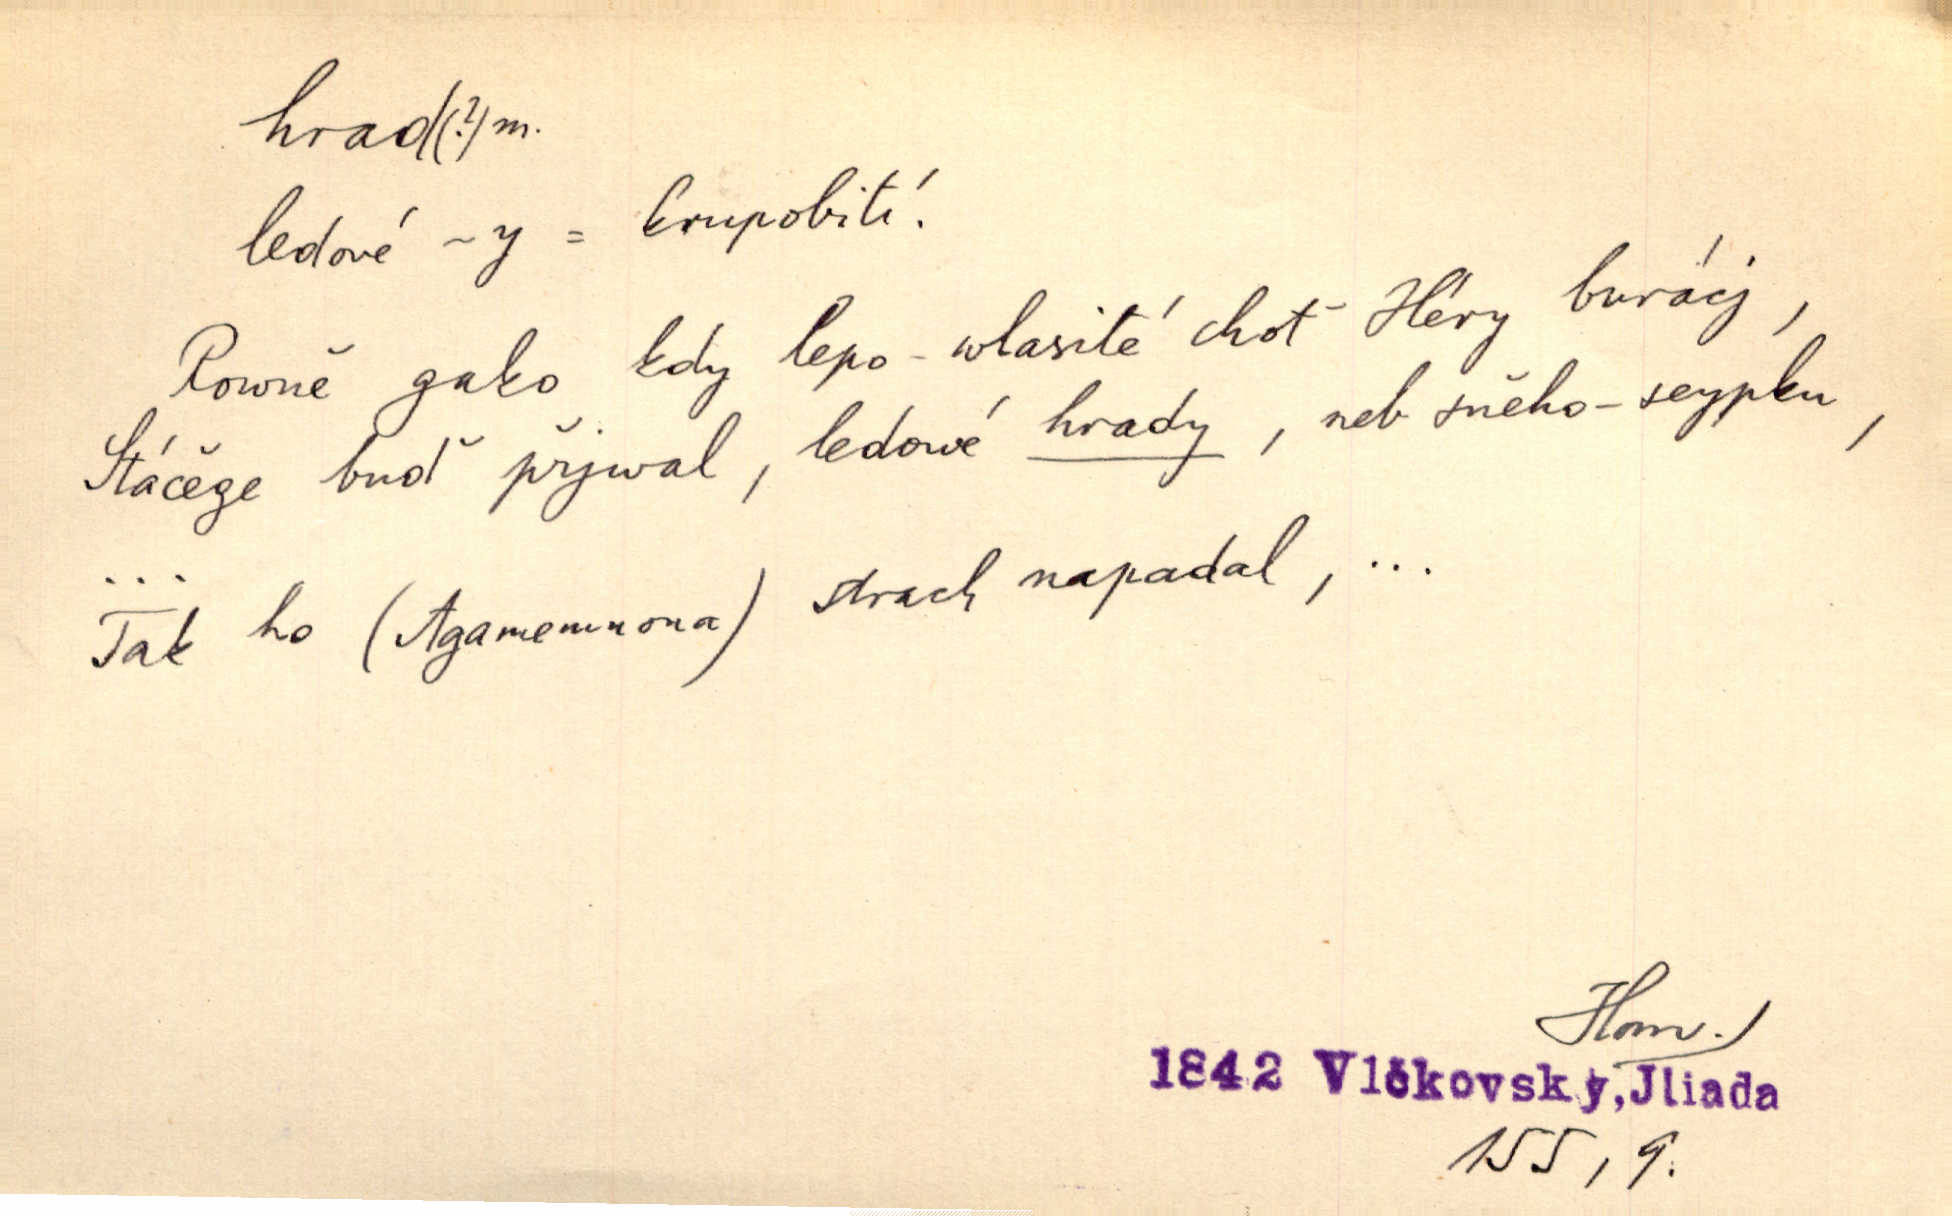 hrad(?) m.
ledové ~y = krupobití.
Rowně gako kdy lepo-wlasité choť Héry burácj,
Stáčěge buď přjwal, ledowé hrady, neb sněho-seypku,
...
Tak ho (Agamemnona) strach napadal, ...
Hom.)
1842 Vlčkovský, Jliada
155, 9.